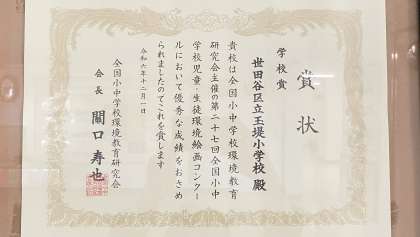 賞状
学校賞
世田谷区立玉堤小学校 殿
貴校は全国小中学校環境教育
研究会主催の第二十七回全国小中
学校児童・生徒環境絵画コンクー
ルにおいて優秀な成績をおさめ
られましたのでこれを賞します
令和六年十二月一日
全国小中学校環境教育研究会
会長 關口寿也